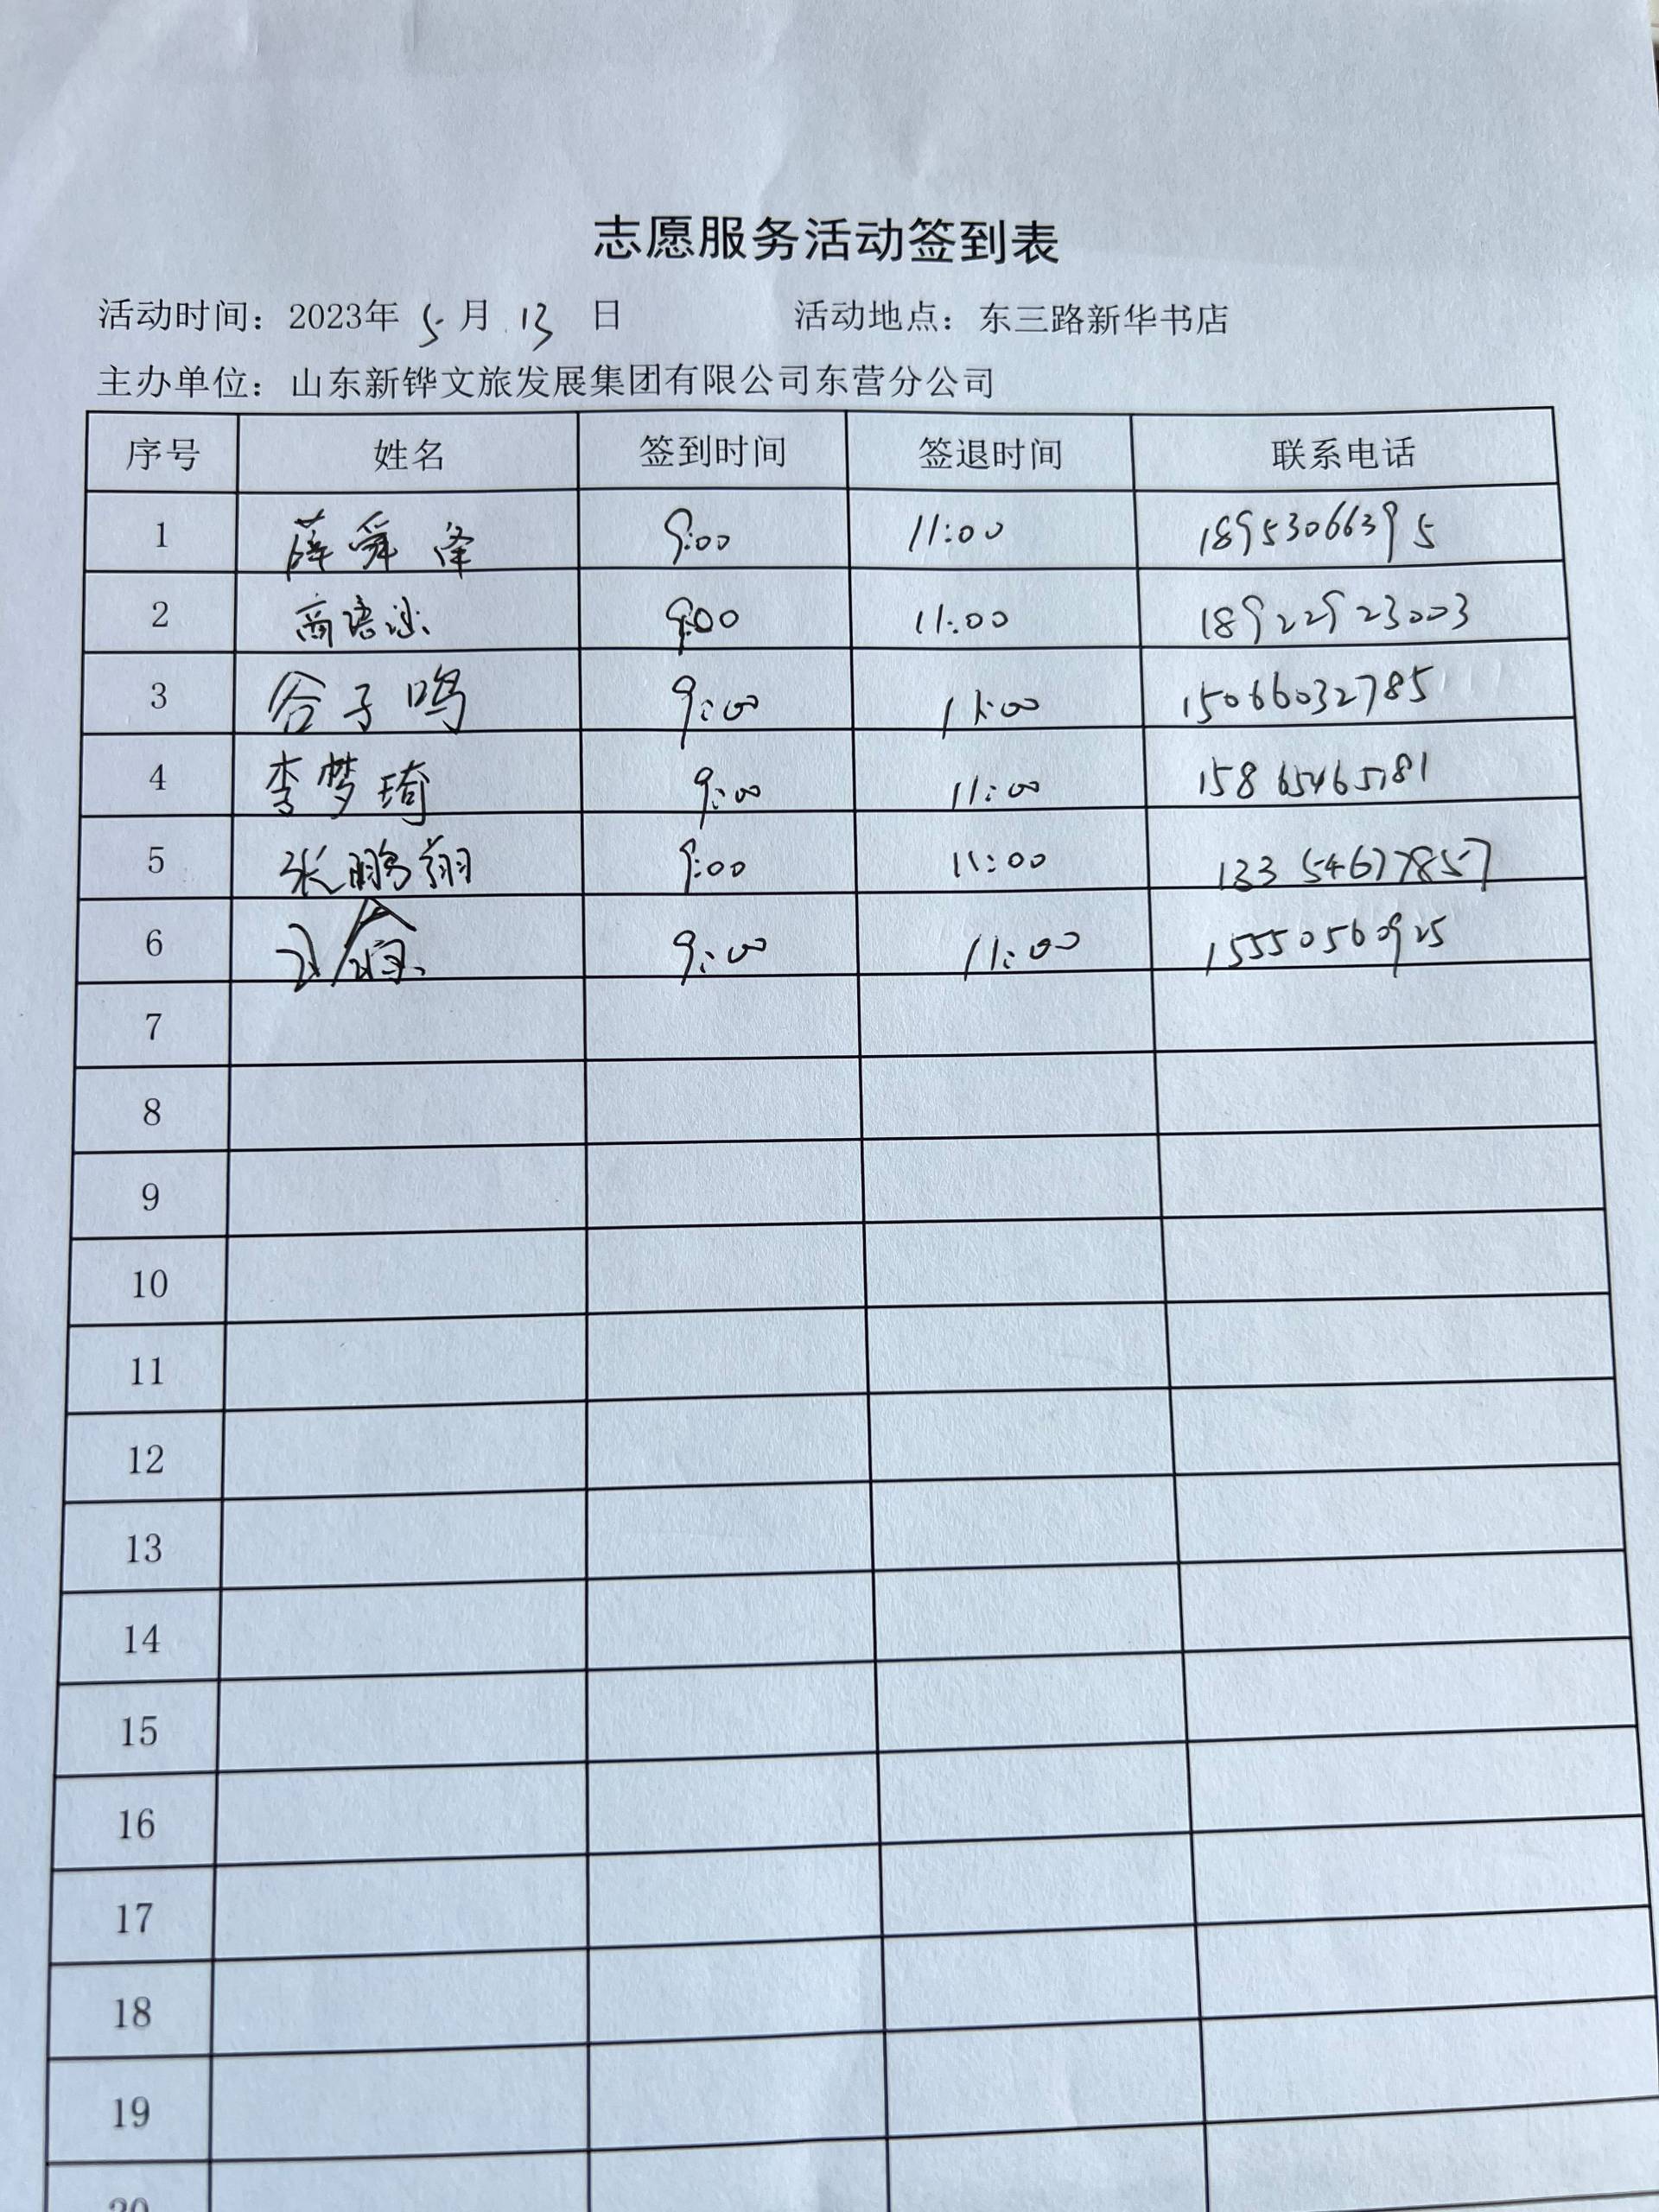 志愿服务活动签到表
活动时间：2023年 5 月 13 日 活动地点：东三路新华书店
主办单位：山东新铧文旅发展集团有限公司东营分公司
序号 姓名 签到时间 签退时间 联系电话
1 薛舜泽 9:00 11:00 18953066395
2 商语 9:00 11:00 18922923003
3 谷子鸣 9:00 11:00 15066032785
4 李梦琦 9:00 11:00 15865465181
5 张鹏翔 9:00 11:00 13354677857
6 9:00 11:00 15550560925
7
8
9
10
11
12
13
14
15
16
17
18
19
20